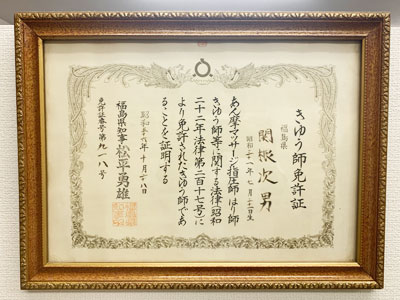 きゆう師免許証
福島県
関根次男
昭和二十八年七月十二日生
あん摩マツサージ指圧師はり師
きゆう師等に関する法律(昭和
二十二年法律第二百十七号)に
より免許されたきゆう師であ
ることを証明する
昭和五十六年十月二十八日
福島県知事 松平勇雄
免許証番号第九一八号